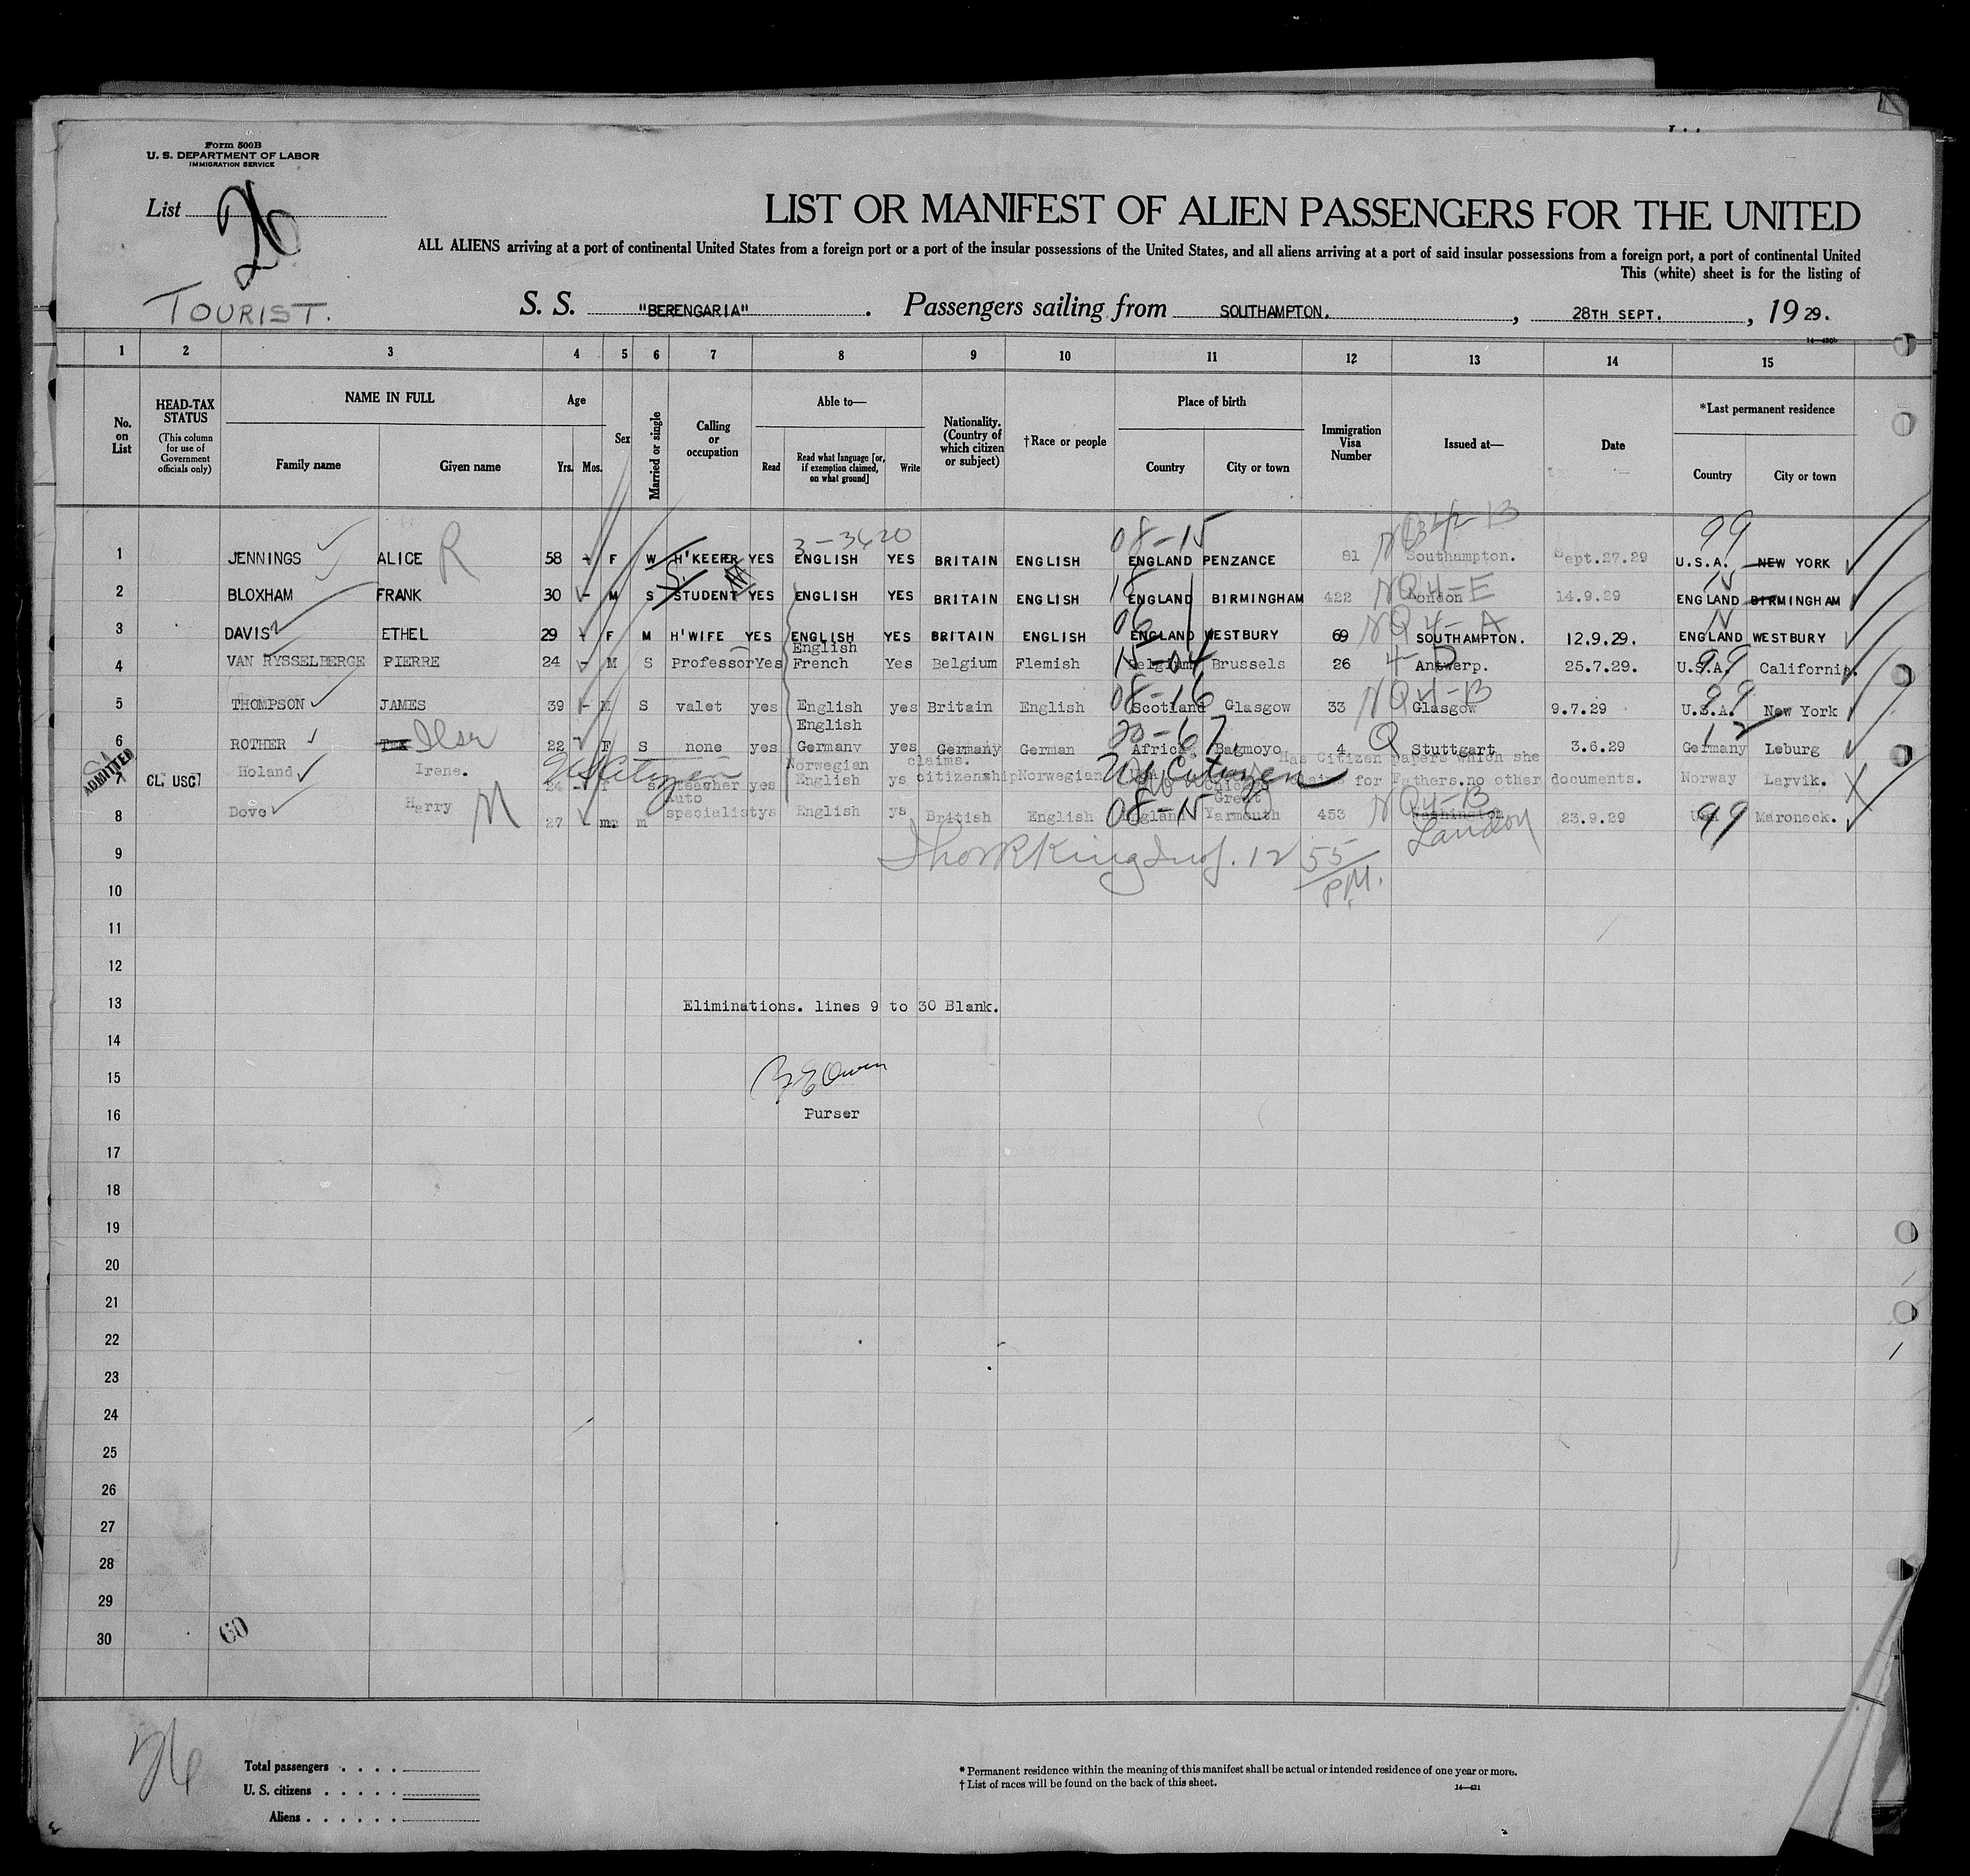 Form 500B
U. S. DEPARTMENT OF LABOR
IMMIGRATION SERVICE
List 26
LIST OR MANIFEST OF ALIEN PASSENGERS FOR THE UNITED
ALL ALIENS arriving at a port of continental United States from a foreign port or a port of the insular possessions of the United States, and all aliens arriving at a port of said insular possessions from a foreign port, a port of continental United
This (white) sheet is for the listing of
TOURIST.
S. S. "BERENGARIA" . Passengers sailing from SOUTHAMPTON. , 28TH SEPT. , 1929.
1 2 3 4 5 6 7 8 9 10 11 12 13 14 15
No. on List
HEAD-TAX STATUS (This column for use of Government officials only)
NAME IN FULL
Family name Given name
Age
Yrs. Mos.
Sex
Married or single
Calling or occupation
Able to—
Read Read what language [or, if exemption claimed, on what ground] Write
Nationality. (Country of which citizen or subject)
†Race or people
Place of birth
Country City or town
Immigration Visa Number
Issued at—
Date
*Last permanent residence
Country City or town
3-3620 08-15 NQ 99
1 JENNINGS ALICE R 58 - F W H'KEEPER YES ENGLISH YES BRITAIN ENGLISH ENGLAND PENZANCE 81 Southampton. Sept.27.29 U.S.A. NEW YORK
2 BLOXHAM FRANK 30 - M S STUDENT YES ENGLISH YES BRITAIN ENGLISH ENGLAND BIRMINGHAM 422 NQ4-E London 14.9.29 ENGLAND BIRMINGHAM
3 DAVIS ETHEL 29 - F M H'WIFE YES ENGLISH YES BRITAIN ENGLISH ENGLAND WESTBURY 69 NQ4-A SOUTHAMPTON. 12.9.29. ENGLAND WESTBURY
4 VAN RYSSELBERGE PIERRE 24 - M S Professor Yes English French Yes Belgium Flemish 15-04 Belgium Brussels 26 4-D Antwerp. 25.7.29. 99 U.S.A. California.
5 THOMPSON JAMES 39 - M S valet yes English yes Britain English 08-16 Scotland Glasgow 33 NQ4-B Glasgow 9.7.29 99 U.S.A. New York
6 ROTHER Ilse 22 - F S none yes English Germany yes Germany German 20-67 Africa. Bagmoyo 4 Q Stuttgart 3.6.29 12 Germany Leburg
ADMITTED
7 CL. USC7 Holand Irene. 24 - F S US Citizen teacher yes Norwegian English ys claims. citizenship Norwegian US Citizen Chicago Has Citizen papers which she claims for Fathers.no other documents. Norway Larvik.
8 Dove Harry M 27 m Auto specialist ys English ys British English 08-15 England Great Yarmouth 453 NQ4-B Washington London 23.9.29 99 USA Maroneck.
9
12 55/P.M.
10
11
12
13 Eliminations. lines 9 to 30 Blank.
14
15
16 Purser
17
18
19
20
21
22
23
24
25
26
27
28
29
30
60
26
Total passengers . . . .
U. S. citizens . . . . .
Aliens . . . . . .
* Permanent residence within the meaning of this manifest shall be actual or intended residence of one year or more.
† List of races will be found on the back of this sheet.
14—431